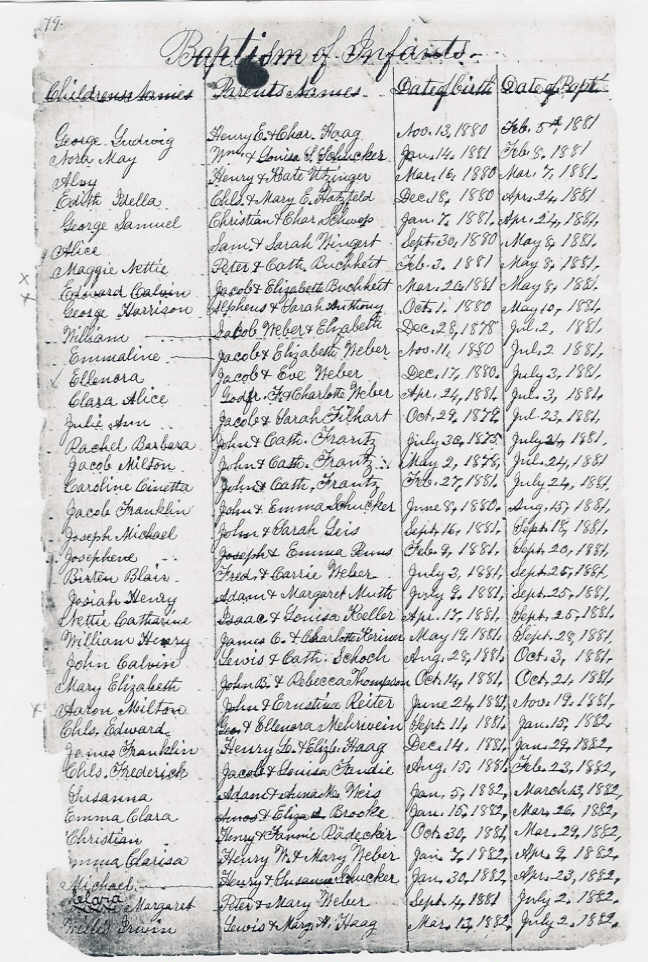 79.
Baptism of Infants.
Childrens Names Parents Names. Date of birth Date of Bapt.
George Ludwig Henry E. & Char. Haag Nov. 13, 1880 Feb. 5th, 1881
Nora May Wm. & Louisa S. Schucker Jan. 14, 1881 Feb. 8, 1881
Henry & Kate Utzinger Mar. 16, 1880 Mar. 7, 1881,
Edith Idella Chls. & Mary E. Hatzfeld Dec. 18, 1880 Apr. 24, 1881,
George Samuel Christian & Char. Jan. 7, 1881, Apr. 24, 1881,
Alice Sam. & Sarah Wingert Sept. 30, 1880 May 8, 1881,
Maggie Nettie Peter & Cath. Buchheit Feb. 3. 1881 May 8, 1881,
Edward Calvin Jacob & Elizabeth Buchheit Mar. 26, 1881 May 8, 1881,
George Harrison Stephens & Sarah Anthony Oct. 1. 1880 May 10, 1881,
William Jacob Weber & Elizabeth Dec. 28, 1878 Jul. 2, 1881,
Emmaline Jacob & Elizabeth Weber Nov. 11, 1880 Jul. 2 1881,
Ellenora Jacob & Eve Weber Dec. 17, 1880. July 3, 1881,
Clara Alice Godfr. F. & Charlotte Weber Apr. 24, 1881 Jul. 3, 1881,
Juli Ann Jacob & Sarah Filhart Oct. 29, 1879, Jul. 23, 1881,
Rachel Barbara John & Cath. Frantz July 30, 1875, July 24, 1881,
Jacob Milson John & Cath. Frantz May 2, 1878, Jul. 24, 1881
Caroline Cinetta John & Cath. Frantz Feb. 27, 1881, July 24, 1881,
Jacob Franklin John & Emma Schucker June 8, 1880. Aug. 15, 1881,
Joseph Michael John & Sarah Geis Sept. 16, 1881, Sept. 18, 1881,
Josephene Joseph & Emma Feb. 9, 1881, Sept. 20, 1881,
Birten Blair Fred. & Carrie Weber July 3, 1881, Sept. 25, 1881,
Josiah Henry Adam & Margaret Muth July 9, 1881, Sept. 25, 1881,
Nettie Catharine Isaac & Louisa Keller Apr. 17, 1881, Sept. 25, 1881,
William Henry James C. & Charlotte Kriner May 19, 1881, Sept. 28, 1881,
John Calvin Lewis & Cath. Schoch Aug. 28, 1881, Oct. 3, 1881,
Mary Elizabeth John B. & Rebecca Thompson Oct. 14, 1881, Oct. 21 1881,
Aaron Milton John & Ernstina Reiter June 24, 1881, Nov. 19, 1881,
Chls. Edward Geo. & Ellenora Mehrwein Sept. 11, 1881, Jan. 15, 1882,
James Franklin Henry L. & Haag Dec. 14. 1881, Jan. 29, 1882,
Chls. Frederick Jacob & Louisa Aug. 15, 1881, Feb. 23, 1882,
Susanna Adam & Weis Jan. 5, 1882, March 13, 1882,
Emma Clara Amos & Brooke Jan. 15, 1882, Mar. 26, 1882,
Christian Henry & Fannie Rädecker Oct. 30, 1881 Mar. 29, 1882,
Emma Clarisa Henry W. & Mary Weber Jan. 7, 1882, Apr. 9, 1882,
Michael Henry & Susanna Schucker Jan. 30, 1882, Apr. 23, 1882,
Clara Margaret Peter & Mary Weber Sept. 4, 1881 July 2, 1882,
Irwin Lewis & Mary A. Haag Mar. 13, 1882, July 2, 1882,